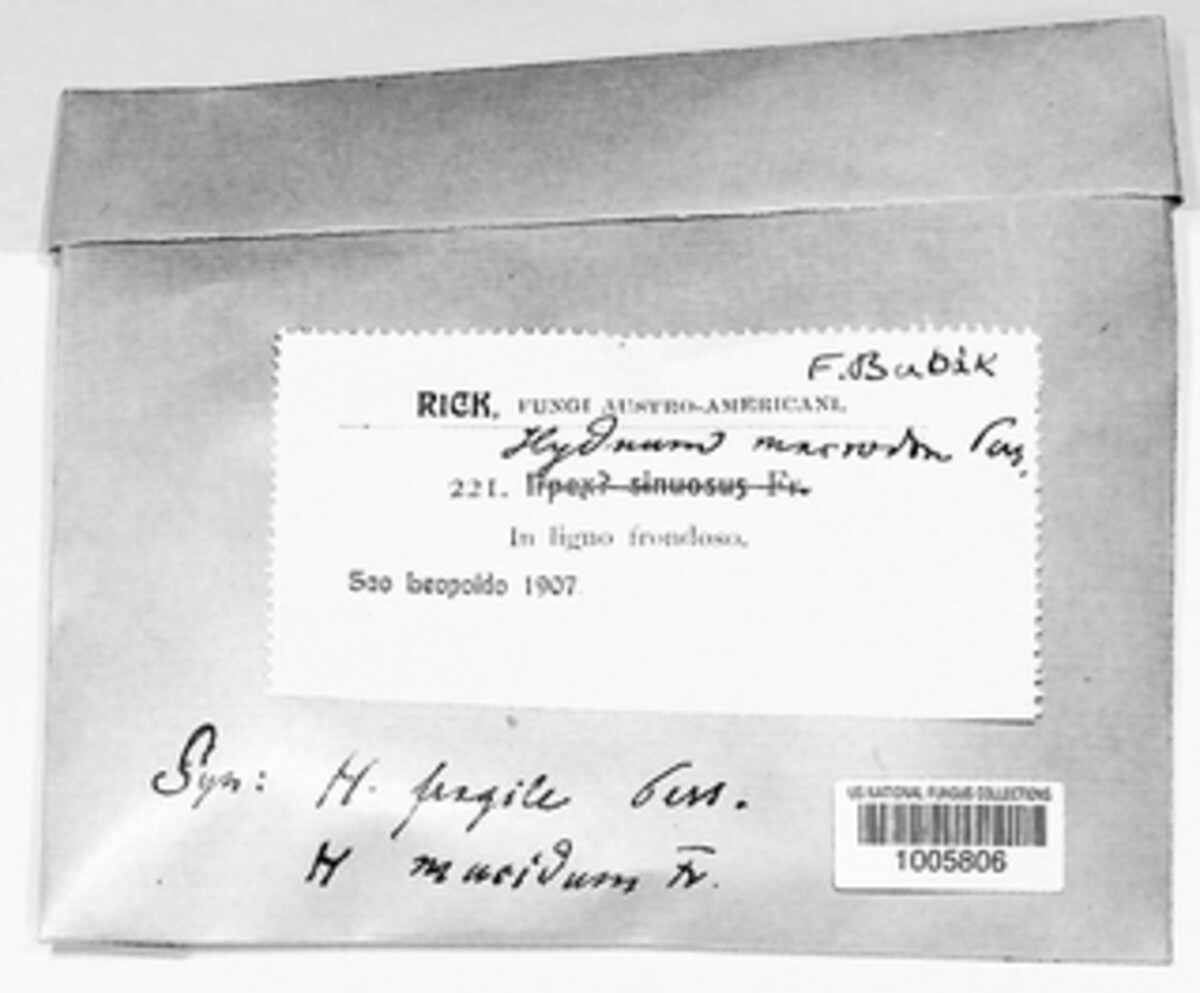 F. Bubák
RICK, FUNGI AUSTRO-AMERICANI.
Hydnum macrodon Pers.
221. Irpex? sinuosus Fr.
In ligno frondoso.
Sao Leopoldo 1907.
Syn: H. fragile Pers.
H mucidum Fr.
US NATIONAL FUNGUS COLLECTIONS
1005806